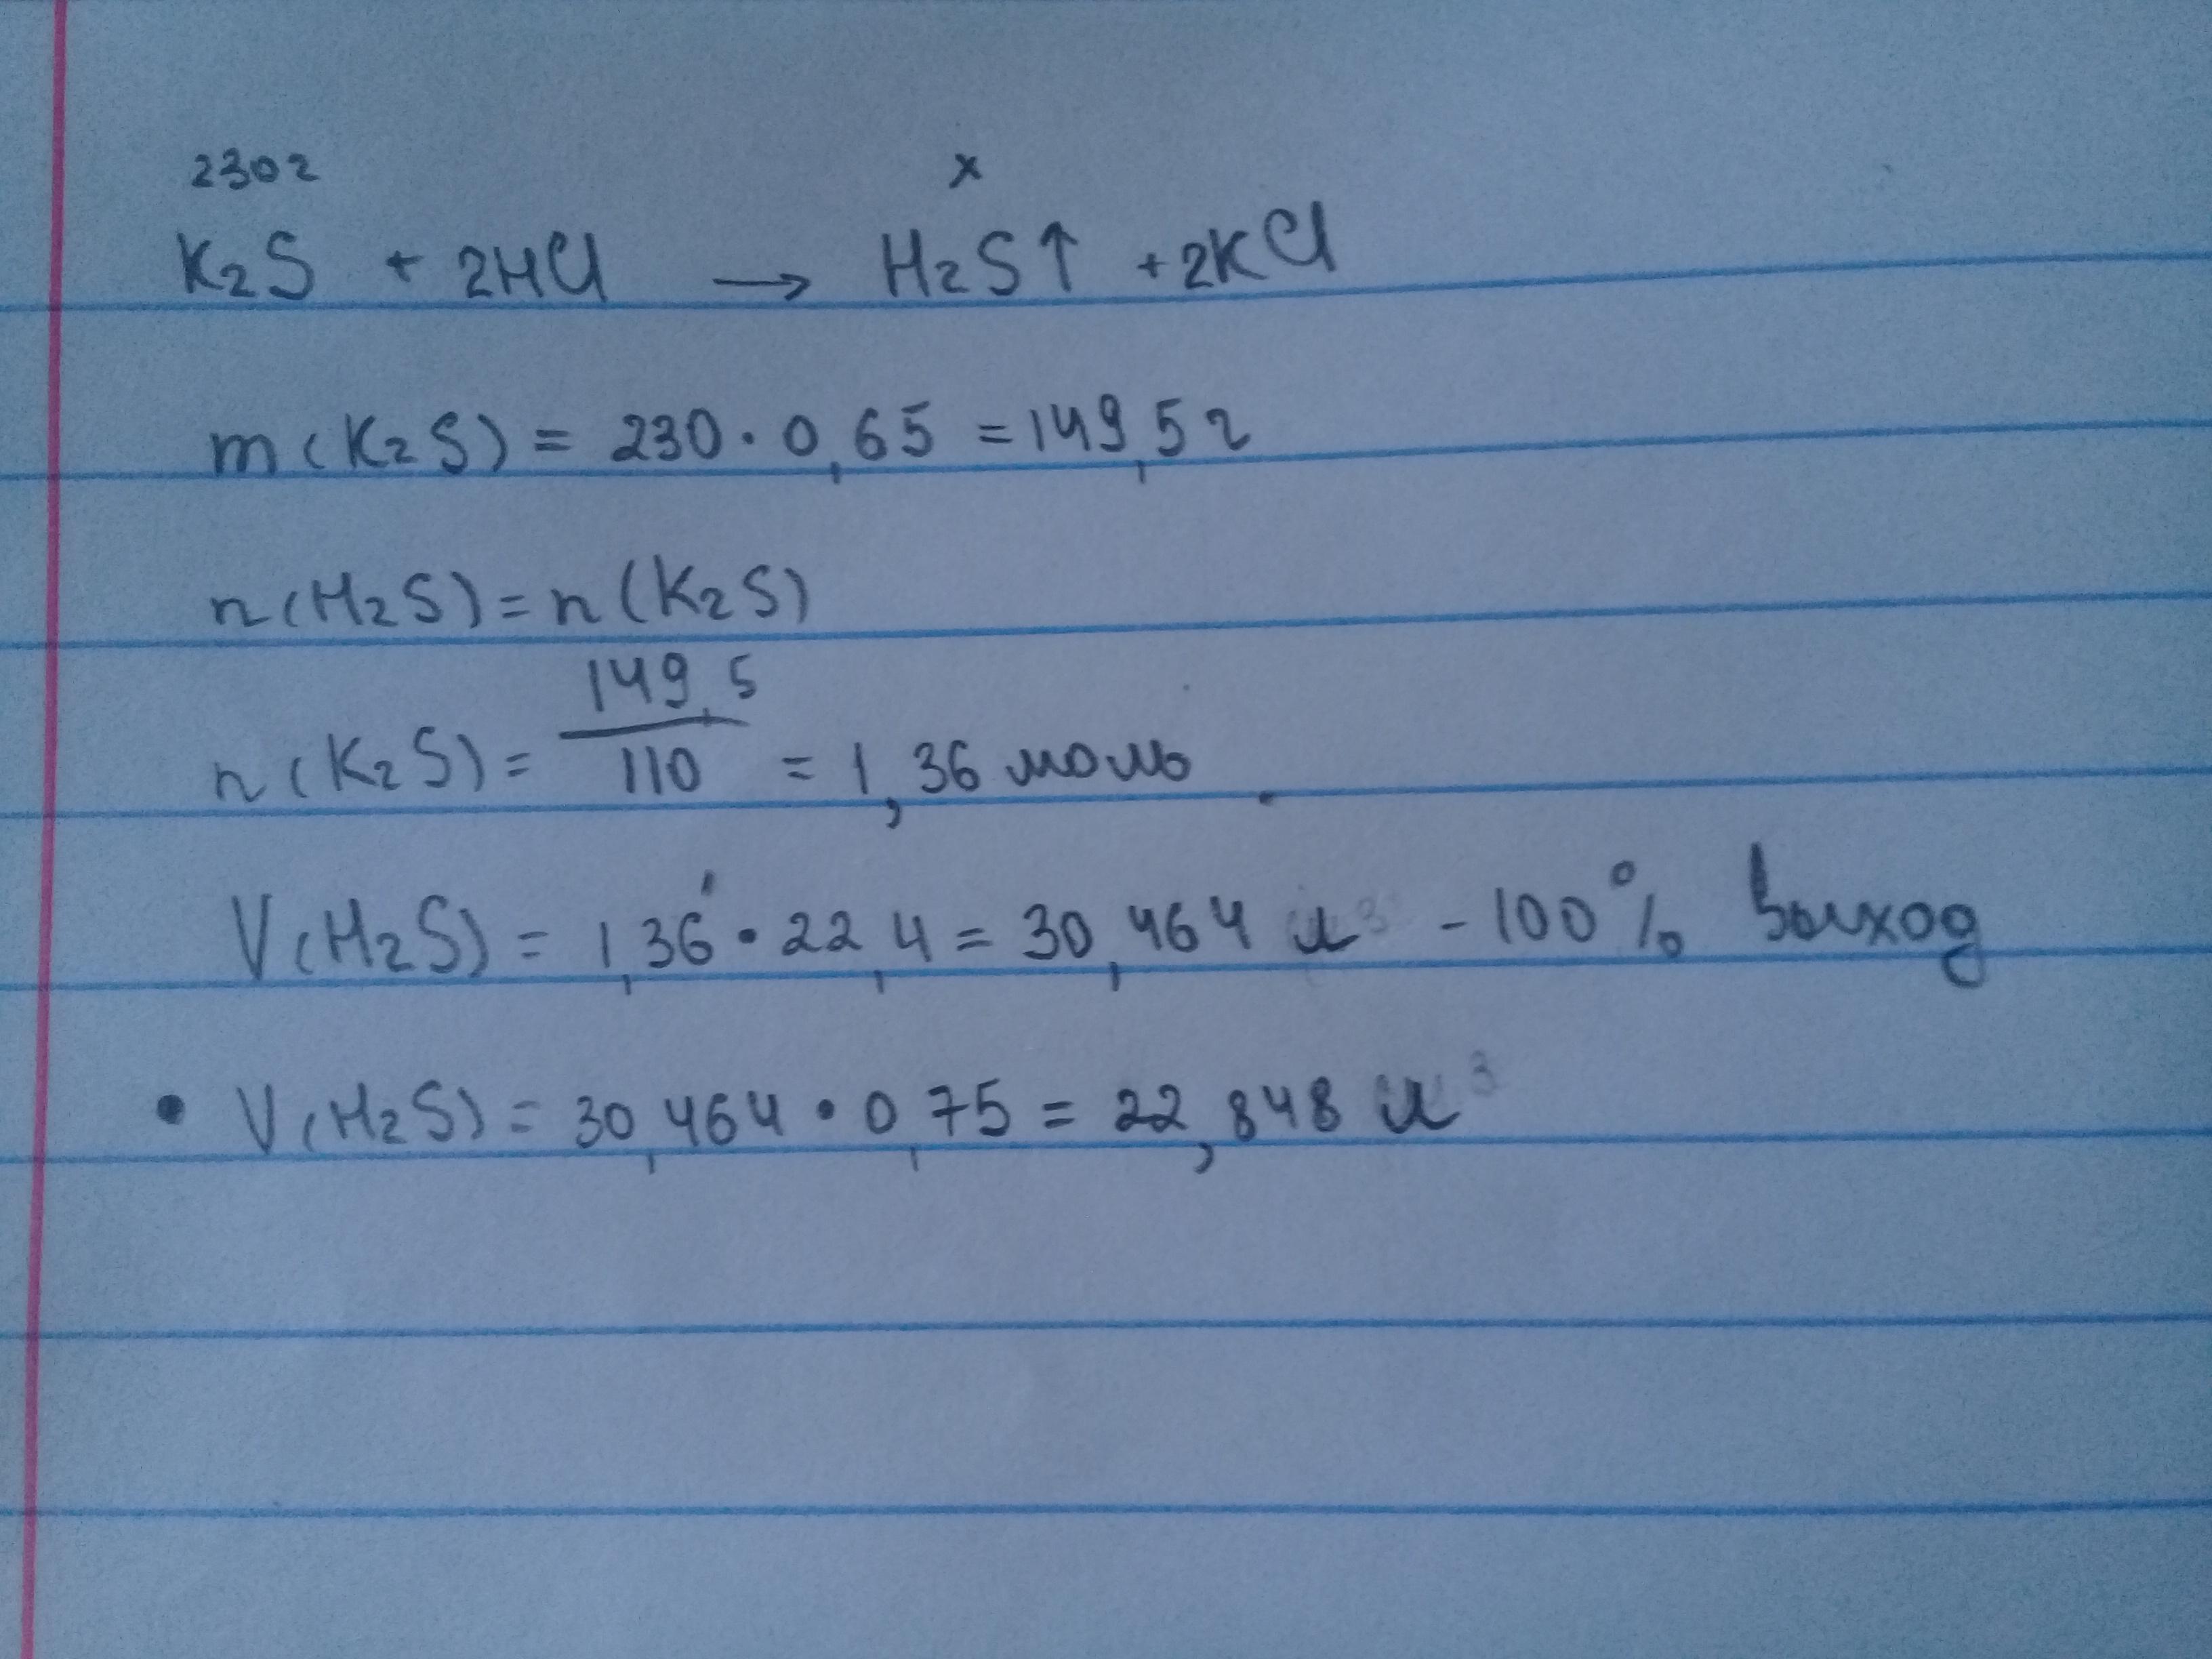 230г x
K2S + 2HCl → H2S↑ + 2KCl
m(K2S) = 230·0,65 = 149,5г
n(H2S) = n(K2S)
n(K2S) = 149,5/110 = 1,36 моль
V(H2S) = 1,36·22,4 = 30,464 л - 100% выход
• V(H2S) = 30,464·0,75 = 22,848 л